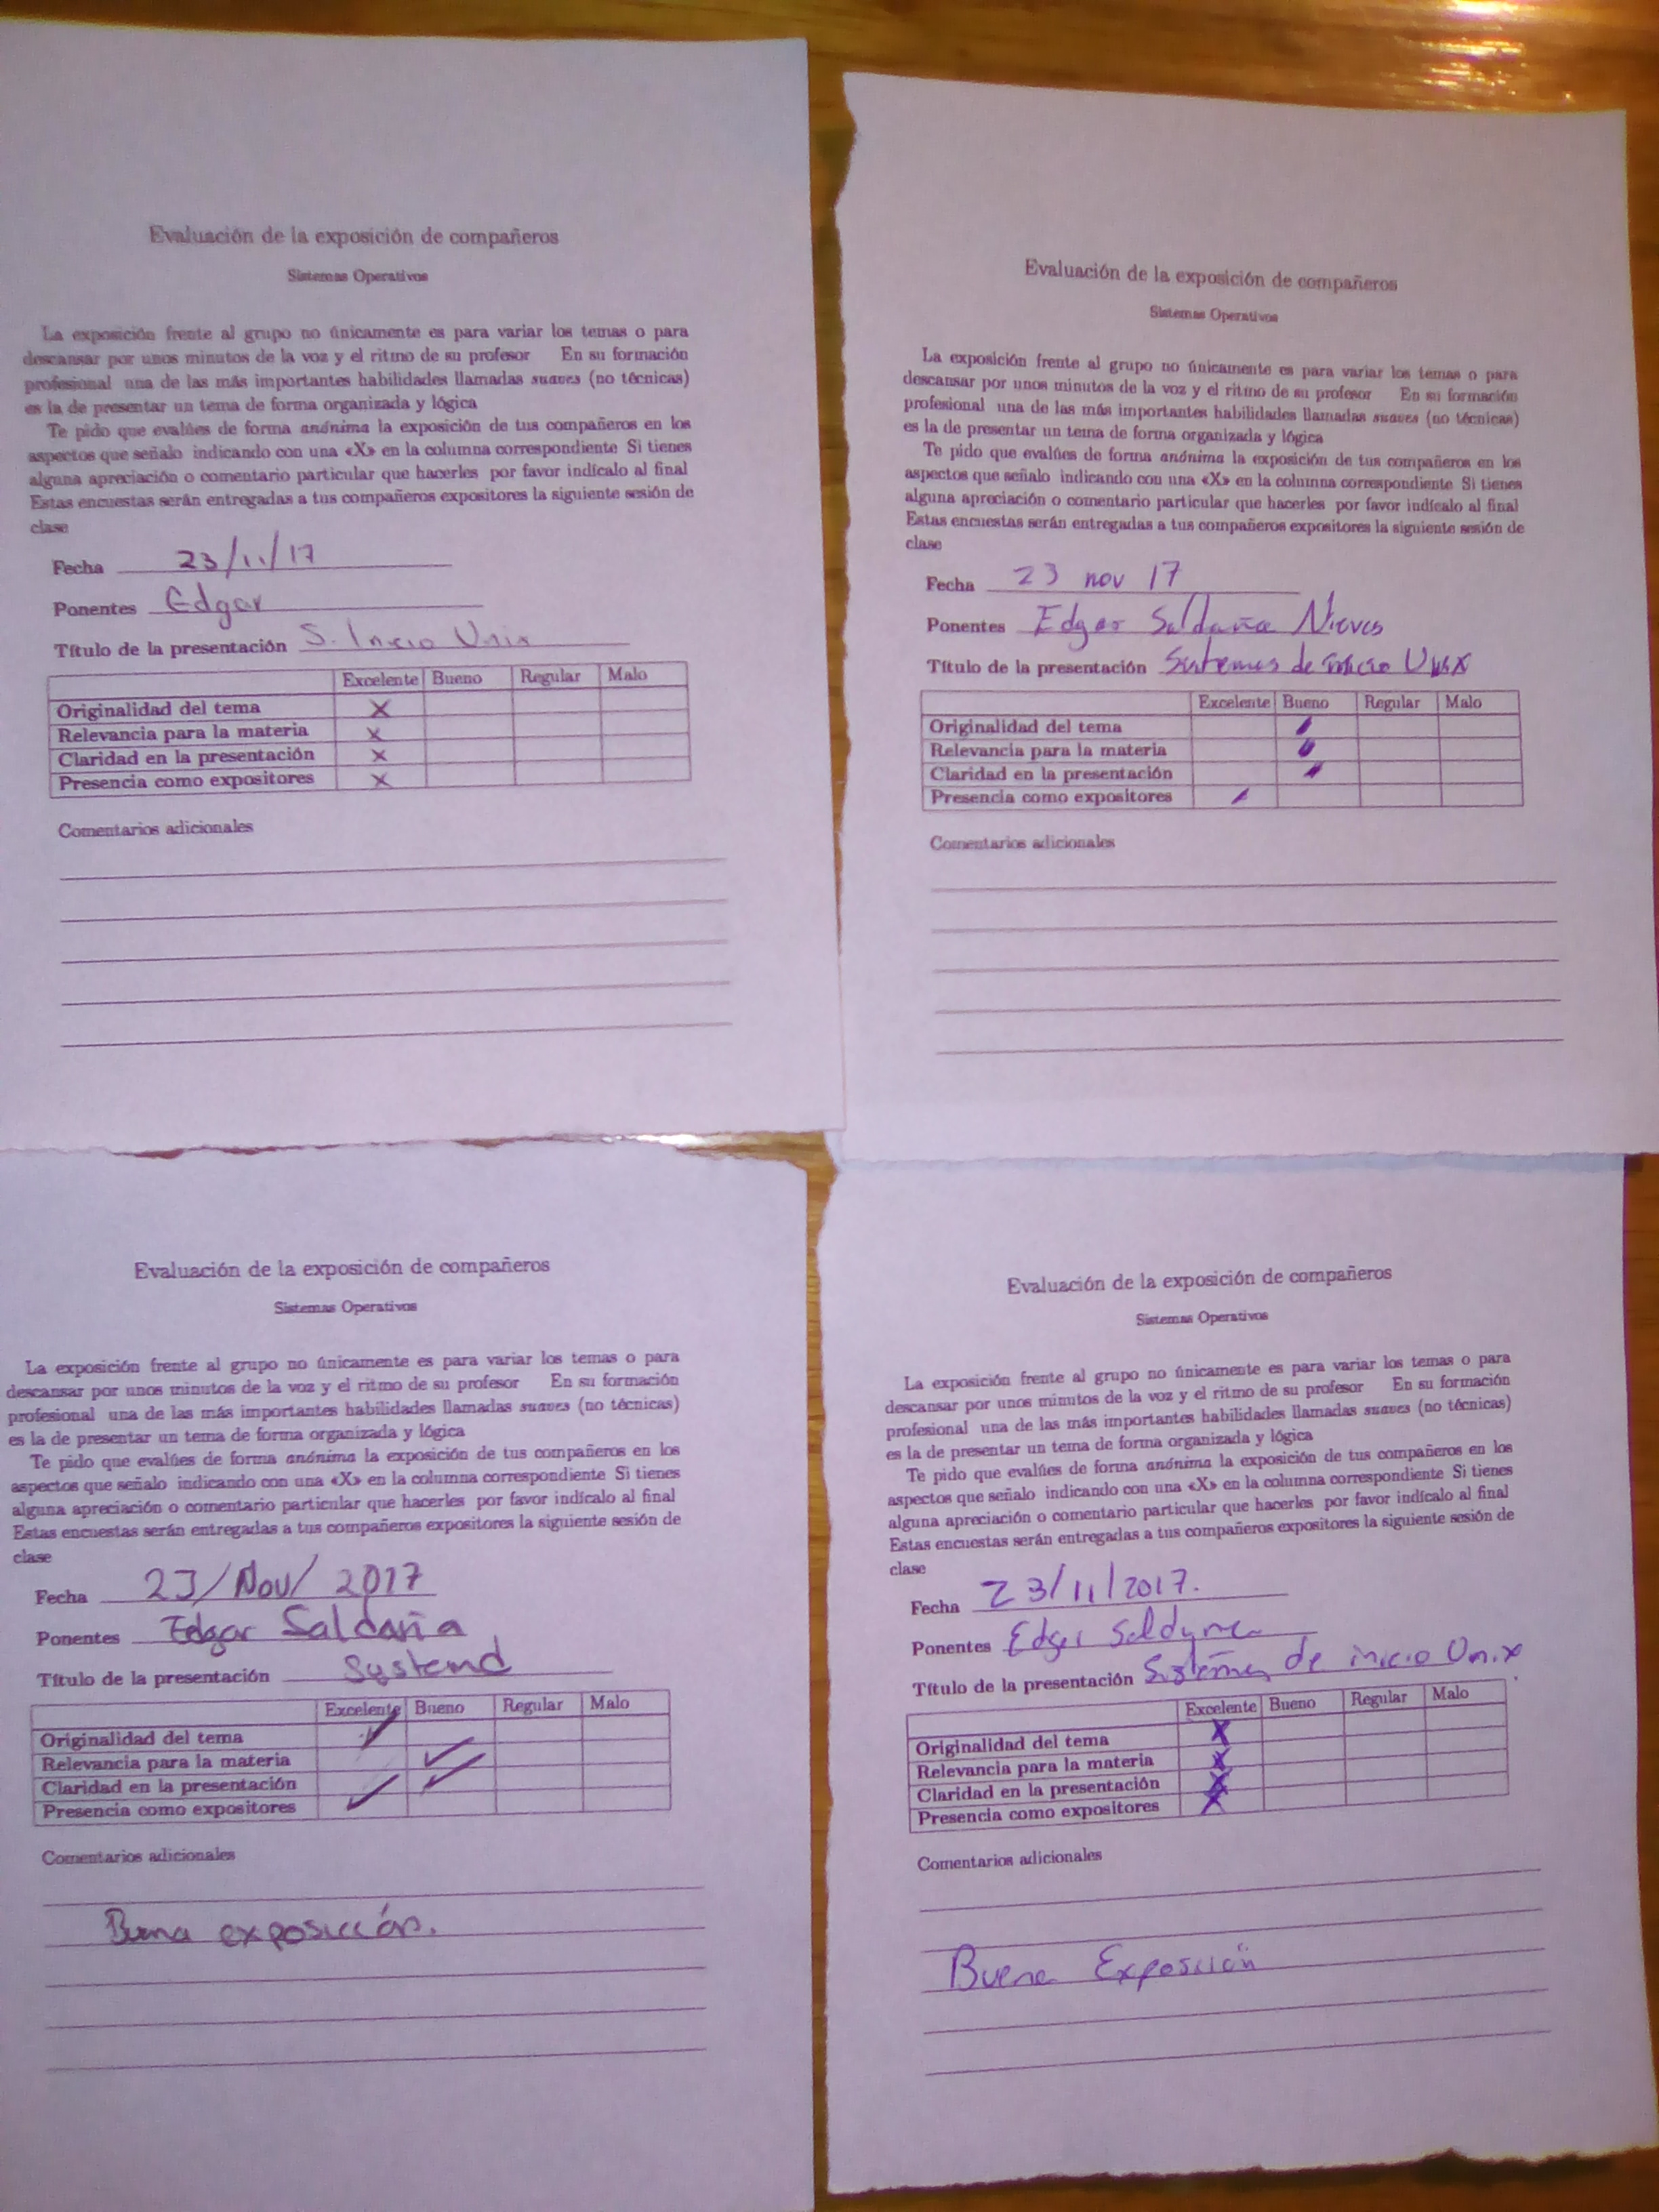 Evaluación de la exposición de compañeros
Sistemas Operativos
La exposición frente al grupo no únicamente es para variar los temas o para
descansar por unos minutos de la voz y el ritmo de su profesor En su formación
profesional una de las más importantes habilidades llamadas suaves (no técnicas)
es la de presentar un tema de forma organizada y lógica
Te pido que evalúes de forma anónima la exposición de tus compañeros en los
aspectos que señalo indicando con una «X» en la columna correspondiente Si tienes
alguna apreciación o comentario particular que hacerles por favor indícalo al final
Estas encuestas serán entregadas a tus compañeros expositores la siguiente sesión de
clase
Fecha 23/11/17
Ponentes Edgar
Título de la presentación S. Inicio Unix
Excelente Bueno Regular Malo
Originalidad del tema X
Relevancia para la materia X
Claridad en la presentación X
Presencia como expositores X
Comentarios adicionales
Evaluación de la exposición de compañeros
Sistemas Operativos
La exposición frente al grupo no únicamente es para variar los temas o para
descansar por unos minutos de la voz y el ritmo de su profesor En su formación
profesional una de las más importantes habilidades llamadas suaves (no técnicas)
es la de presentar un tema de forma organizada y lógica
Te pido que evalúes de forma anónima la exposición de tus compañeros en los
aspectos que señalo indicando con una «X» en la columna correspondiente Si tienes
alguna apreciación o comentario particular que hacerles por favor indícalo al final
Estas encuestas serán entregadas a tus compañeros expositores la siguiente sesión de
clase
Fecha 23 nov 17
Ponentes Edgar Saldaña Nieves
Título de la presentación Sistemas de inicio Unix
Excelente Bueno Regular Malo
Originalidad del tema
Relevancia para la materia
Claridad en la presentación
Presencia como expositores
Comentarios adicionales
Evaluación de la exposición de compañeros
Sistemas Operativos
La exposición frente al grupo no únicamente es para variar los temas o para
descansar por unos minutos de la voz y el ritmo de su profesor En su formación
profesional una de las más importantes habilidades llamadas suaves (no técnicas)
es la de presentar un tema de forma organizada y lógica
Te pido que evalúes de forma anónima la exposición de tus compañeros en los
aspectos que señalo indicando con una «X» en la columna correspondiente Si tienes
alguna apreciación o comentario particular que hacerles por favor indícalo al final
Estas encuestas serán entregadas a tus compañeros expositores la siguiente sesión de
clase
Fecha 23/Nov/2017
Ponentes Edgar Saldaña
Título de la presentación Systemd
Excelente Bueno Regular Malo
Originalidad del tema
Relevancia para la materia
Claridad en la presentación
Presencia como expositores
Comentarios adicionales
Buena exposición.
Evaluación de la exposición de compañeros
Sistemas Operativos
La exposición frente al grupo no únicamente es para variar los temas o para
descansar por unos minutos de la voz y el ritmo de su profesor En su formación
profesional una de las más importantes habilidades llamadas suaves (no técnicas)
es la de presentar un tema de forma organizada y lógica
Te pido que evalúes de forma anónima la exposición de tus compañeros en los
aspectos que señalo indicando con una «X» en la columna correspondiente Si tienes
alguna apreciación o comentario particular que hacerles por favor indícalo al final
Estas encuestas serán entregadas a tus compañeros expositores la siguiente sesión de
clase
Fecha 23/11/2017.
Ponentes Edgar
Título de la presentación Sistemas de inicio Unix
Excelente Bueno Regular Malo
Originalidad del tema X
Relevancia para la materia X
Claridad en la presentación X
Presencia como expositores X
Comentarios adicionales
Buena Exposición